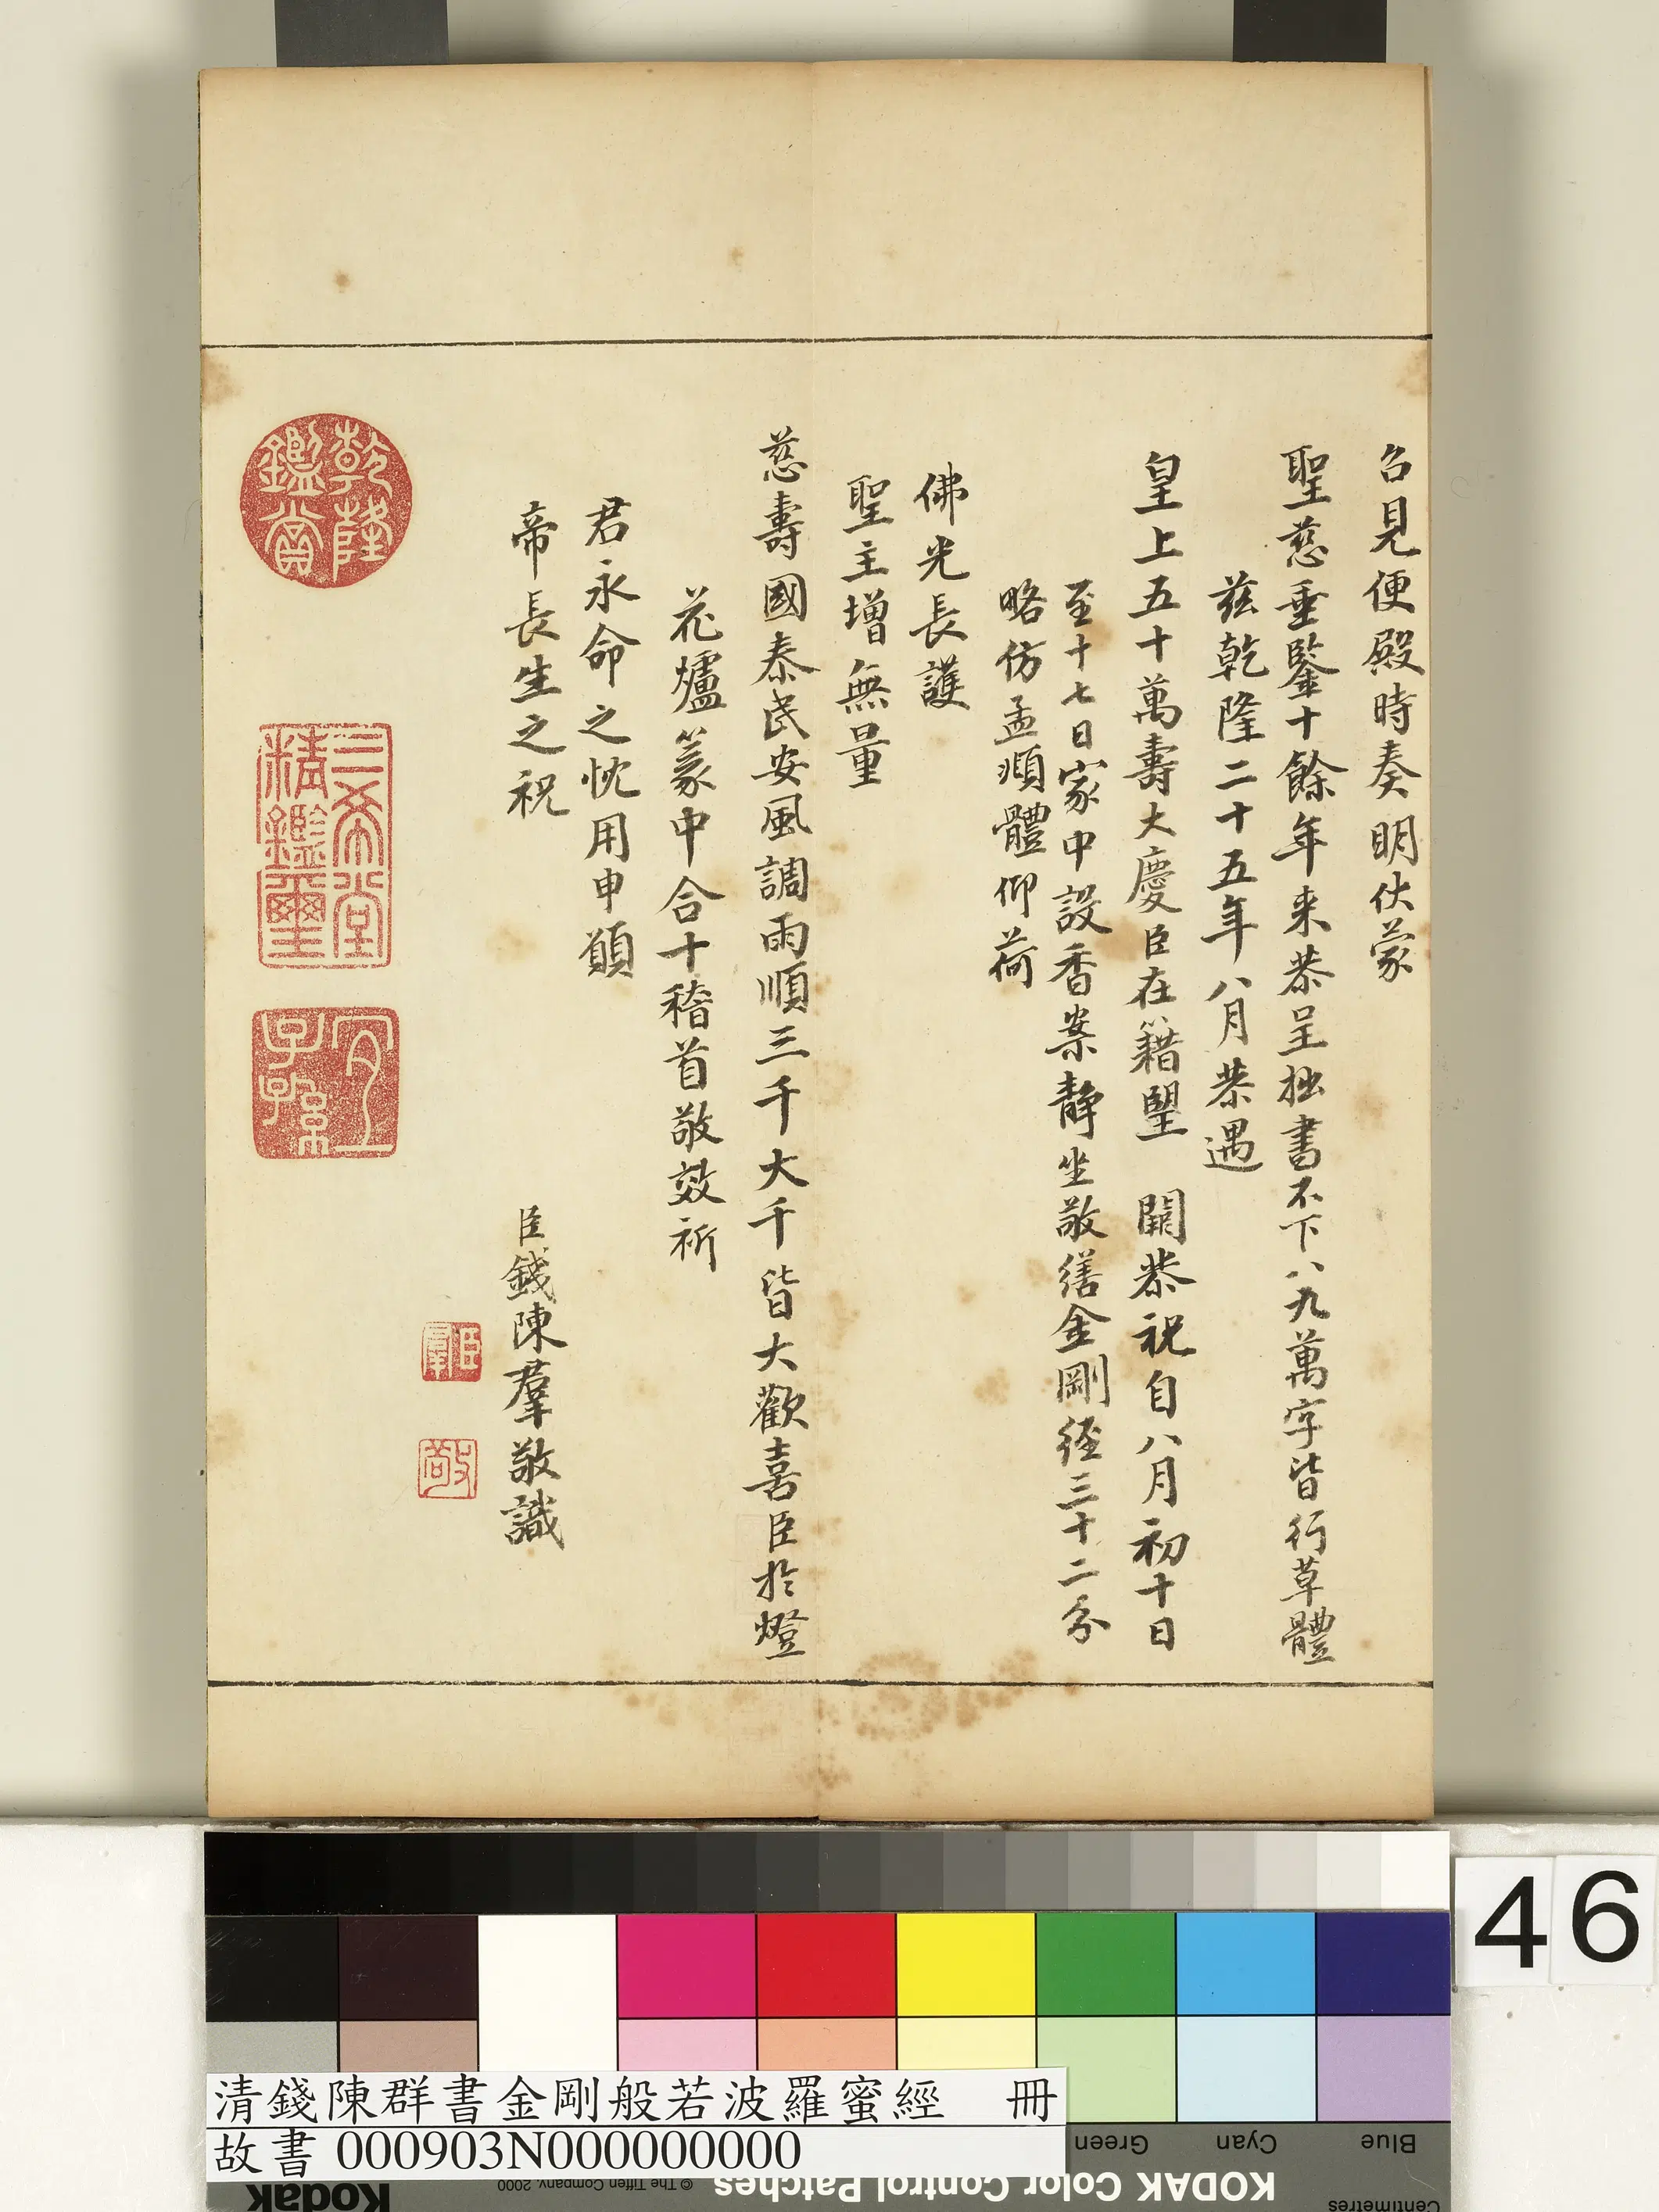 召見便殿時奏明伏蒙
聖慈垂鑒十餘年来恭呈拙書不下八九萬字皆行草體
兹乾隆二十五年八月恭遇
皇上五十萬壽大慶臣在籍望 闕恭祝自八月初十日
至十七日家中設香案靜坐敬繕金剛經三十二分
略仿孟頫體仰荷
佛光長護
聖主增無量
慈壽國泰民安風調雨順三千大千皆大歡喜臣扵燈
花爐篆中合十稽首敬效祈
君永命之忱用申願
帝長生之祝
臣錢陳羣敬識
臣羣
敬
乾隆鑑賞
三希堂精鑑璽
宜子孫
46
清錢陳群書金剛般若波羅蜜經 冊
故書 000903N000000000
Blue
Cyan
Green
KODAK Color Control Patches
© The Tiffen Company, 2000
Kodak
Centimetres